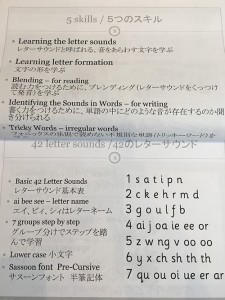 5 skills / 5つのスキル
• Learning the letter sounds
レターサウンドと呼ばれる、音をあらわす文字を学ぶ
• Learning letter formation
文字の形を学ぶ
• Blending – for reading
読む力をつけるために、ブレンディング(レターサウンドをくっつけて発音)を学ぶ
• Identifying the Sounds in Words – for writing
書く力をつけるために、単語の中にどのような音が存在するのか聞き分けられる
• Tricky Words – irregular words
42 letter sounds /42のレターサウンド
• Basic 42 Letter Sounds
レターサウンド基本表
• ai bee see – letter name
エイ、ビィ、シィはレターネーム
• 7 groups step by step
グループ分けでステップを踏んで学習
• Lower case 小文字
• Sassoon font Pre-Cursive
サスーンフォント 半筆記体
1 s a t i p n
2 c k e h r m d
3 g o u l f b
4 ai j oa ie ee or
5 z w ng v oo oo
6 y x ch sh th th
7 qu ou oi ue er ar